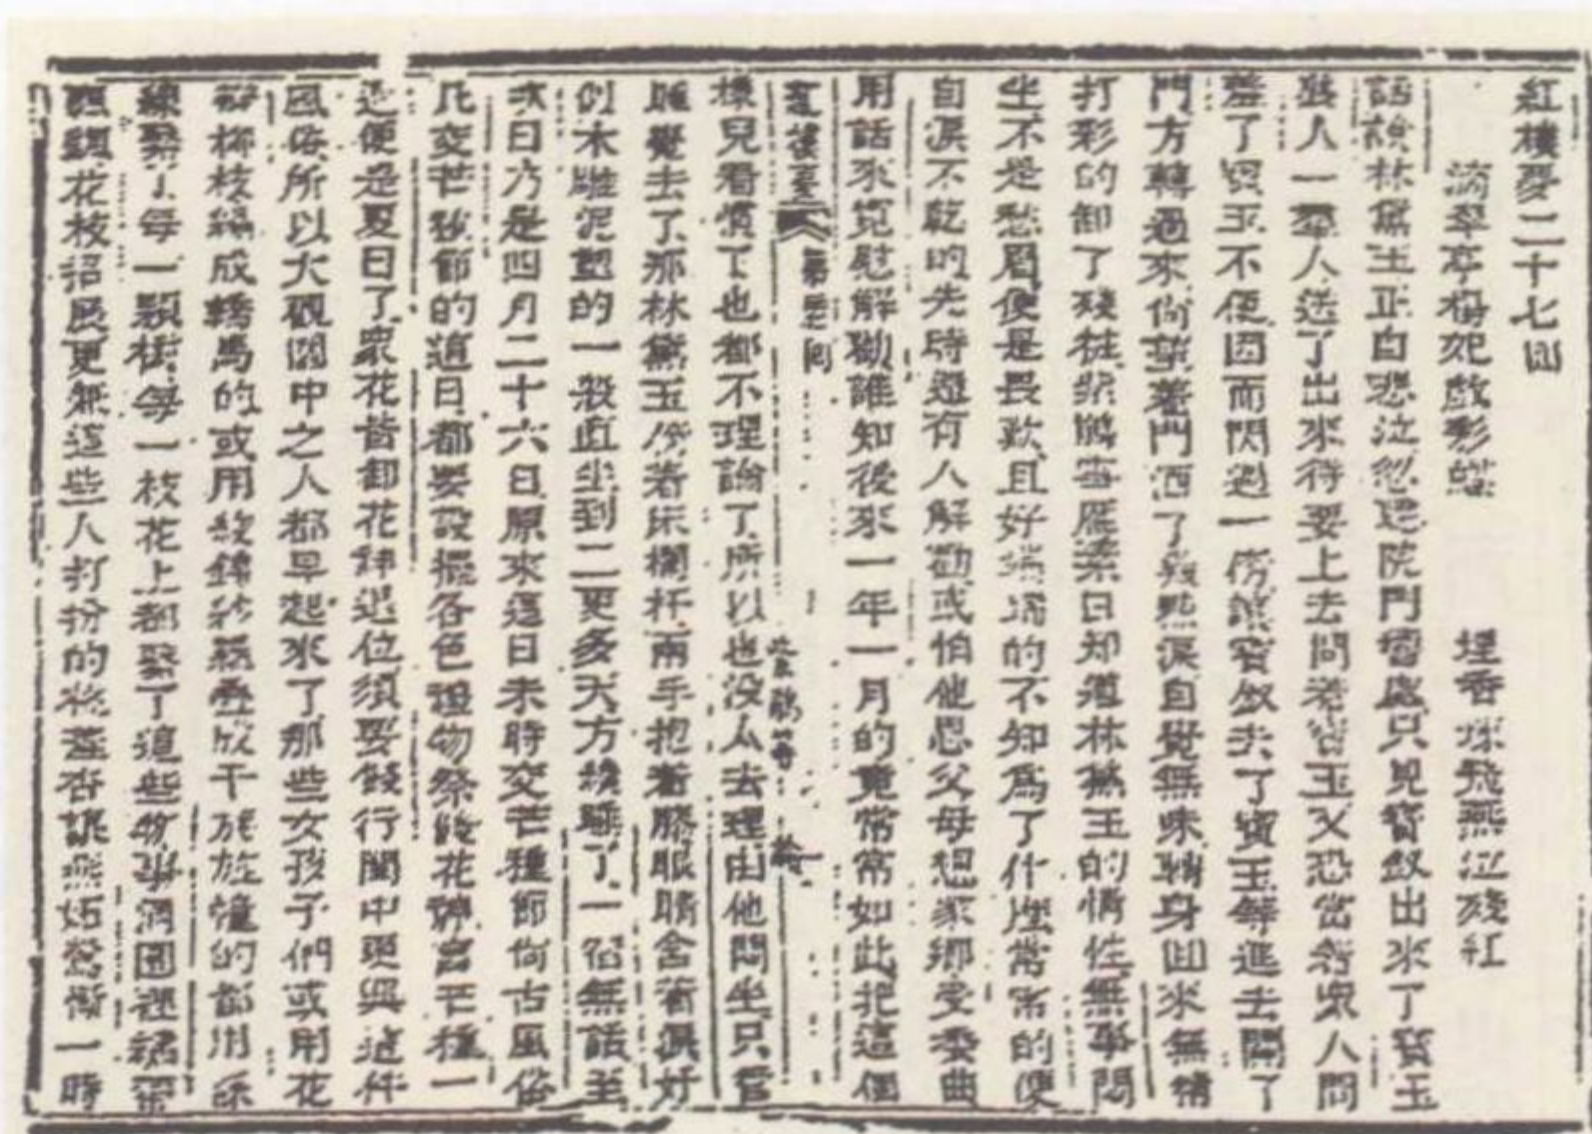 紅樓夢二十七回
滴翠亭楊妃戲彩蝶 埋香塚飛燕泣殘紅
話說林黛玉正自悲泣忽聽院門響處只見寶釵出來了寶玉
襲人一羣人送了出來待要上去問着寶玉又恐當着衆人問
羞了寶玉不便因而閃過一傍讓寶釵去了寶玉等進去關了
門方轉過來尚望着門洒了幾點淚自覺無味轉身回來無精
打彩的卸了殘粧紫鵑雪雁素日知道林黛玉的情性無事悶
坐不是愁眉便是長歎且好端端的不知爲了什麽常常的便
自淚不乾的先時還有人解勸或怕他思父母想家鄉受委曲
用話來寬慰解勸誰知後來一年一月的竟常常如此把這個
紅樓夢 第二七回
樣兒看慣了也都不理論了所以也没人去理由他悶坐只管
睡覺去了那林黛玉倚着床欄杆兩手抱着膝眼睛含着淚好
似木雕泥塑的一般直坐到二更多天方纔睡了一宿無話至
次日乃是四月二十六日原來這日未時交芒種節尚古風俗
凡交芒種節的這日都要設擺各色禮物祭餞花神言芒種一
過便是夏日了衆花皆卸花神退位須要餞行閨中更興這件
風俗所以大觀園中之人都早起來了那些女孩子們或用花
瓣柳枝編成轎馬的或用綾錦紗羅疊成干旄旌幢的都用綵
線繫了每一顆樹每一枝花上都繫了這些物事滿園裡綉帶
飄飖花枝招展更兼這些人打扮的桃羞杏讓燕妬鶯慚一時